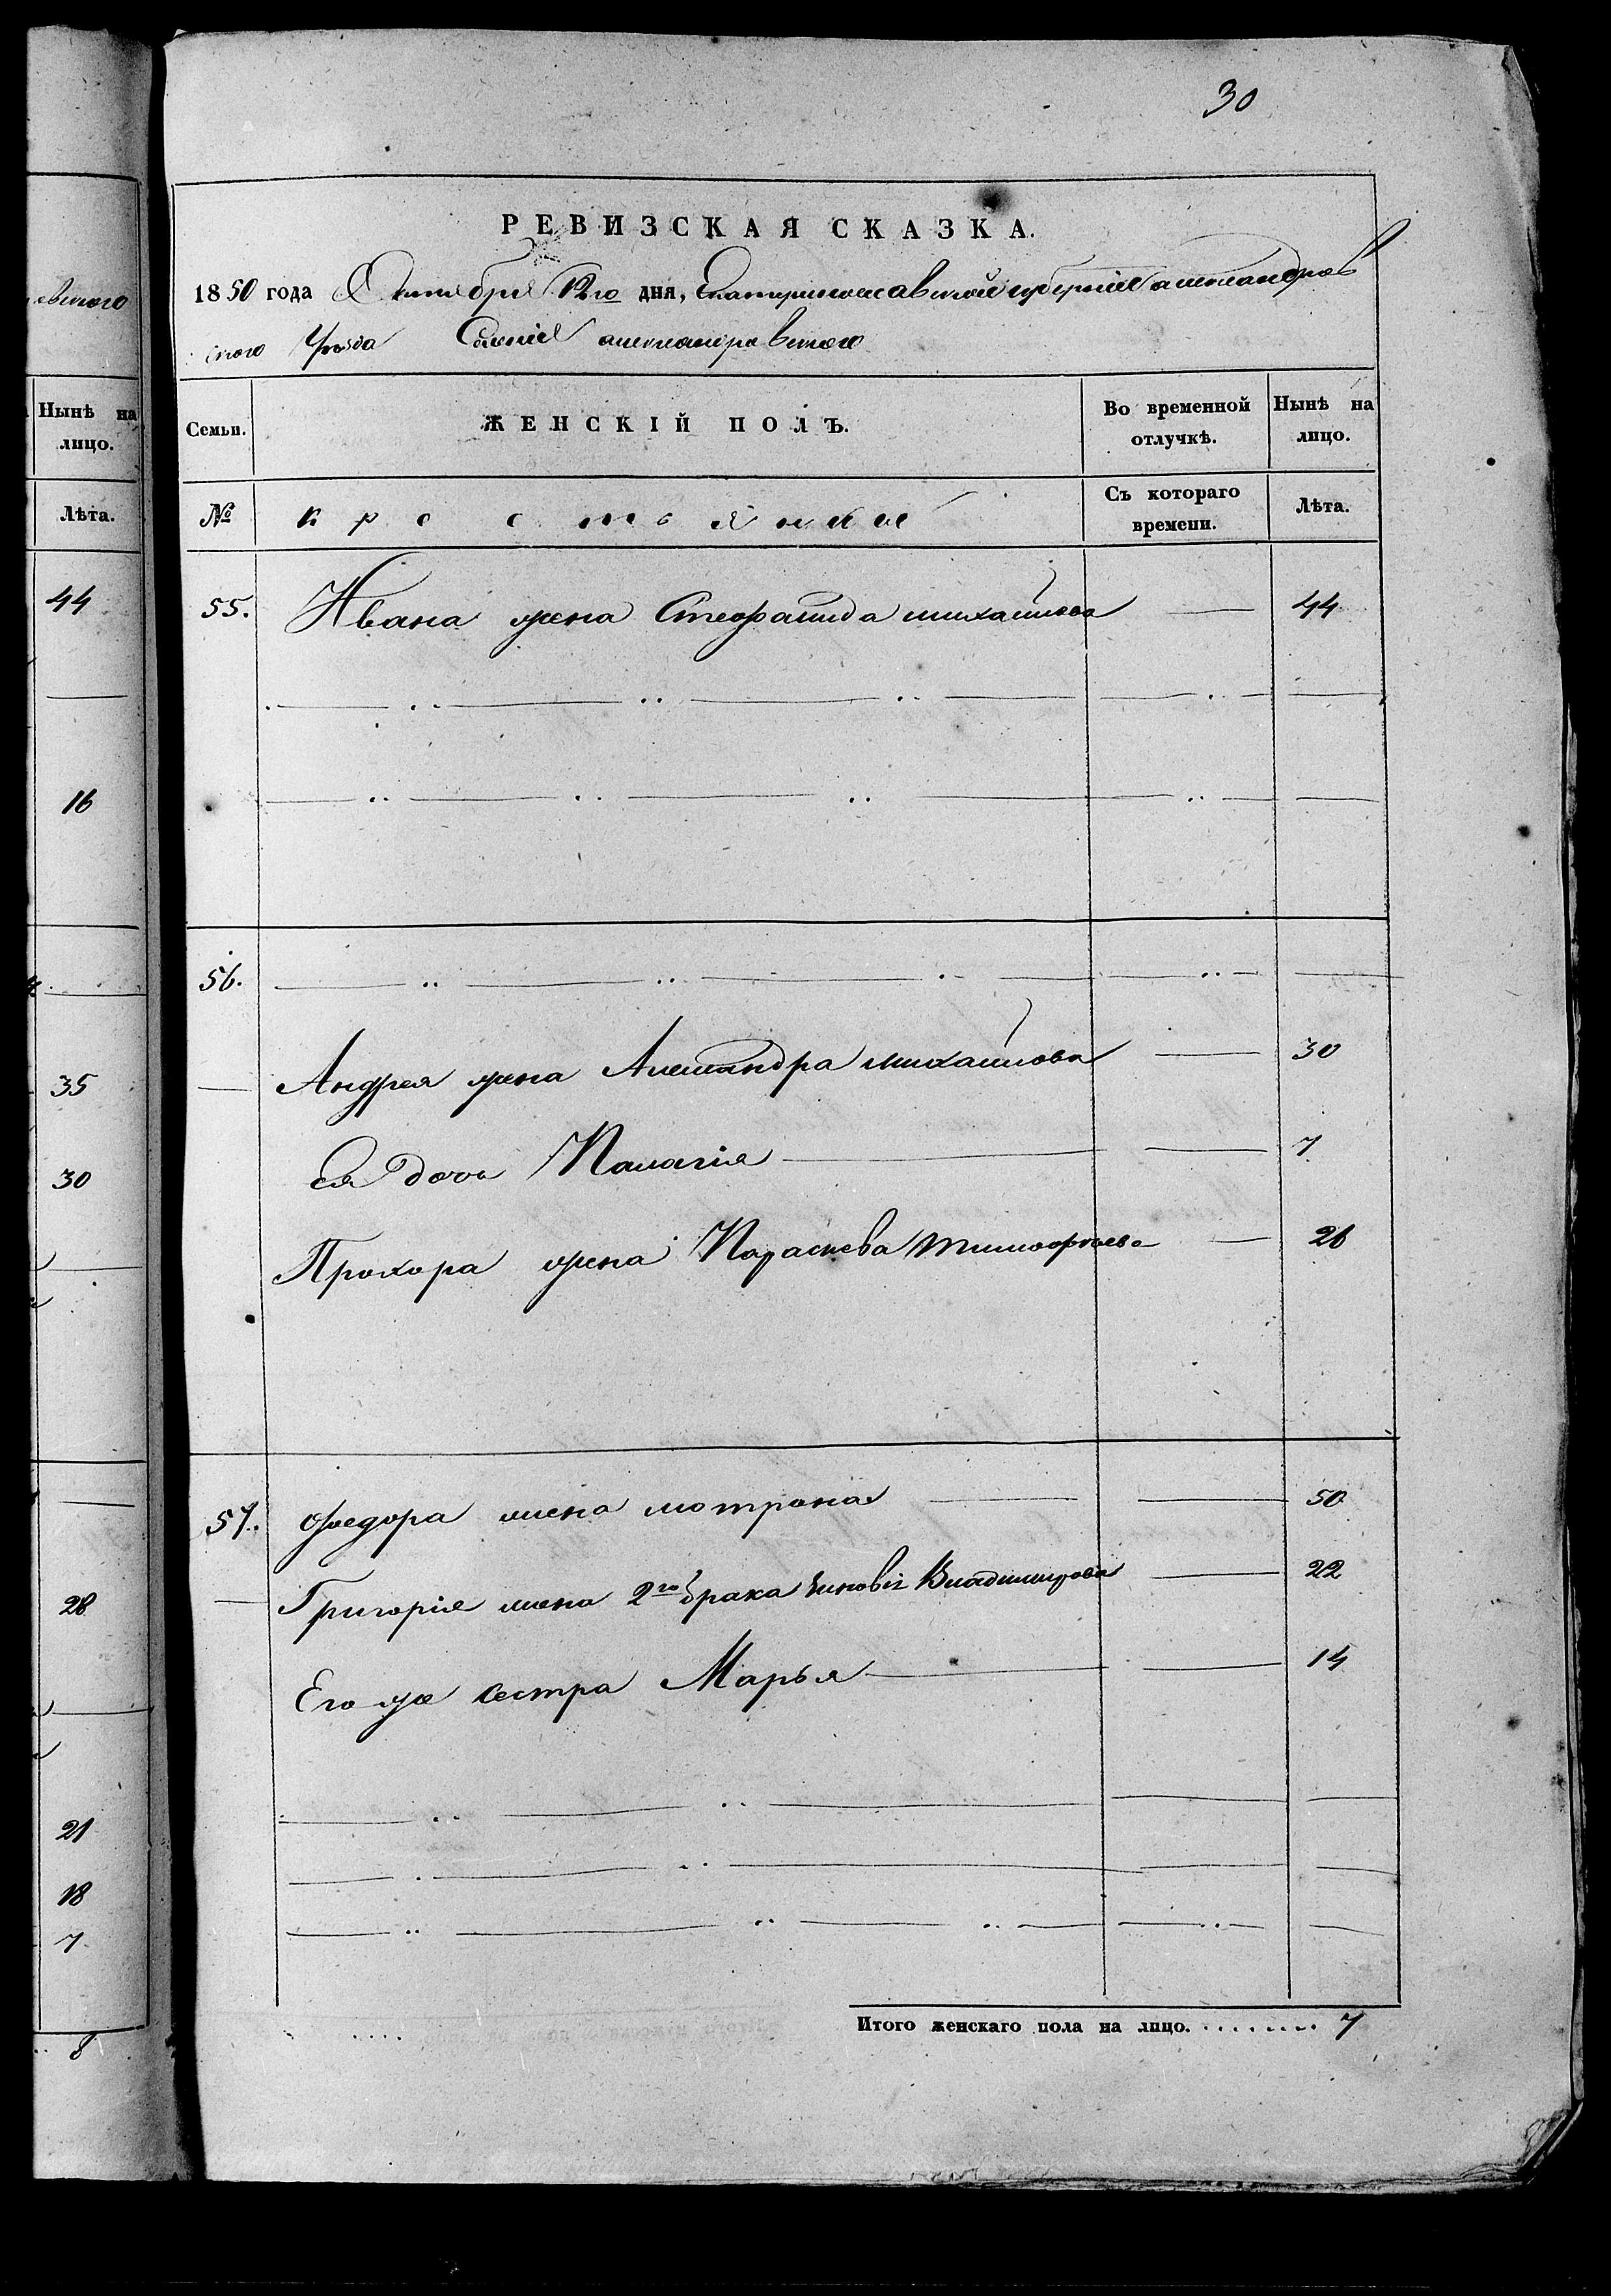 30
РЕВИЗСКАЯ СКАЗКА.
1850 года Октября 12го дня, Екатеринославской губерніи александров
скаго Уѣзда Селенія александровскаго
Семьи. ЖЕНСКІЙ ПОЛЪ. Во временной отлучкѣ. Нынѣ на лицо.
№ крестьянки Съ котораго времени. Лѣта.
55. Ивана жена Стефанида михайлова — 44
56.
Андрея жена Александра михайлова — 30
ея дочь Палагія — 7
Прохора жена Параскева тимофѣева — 26
57. федора жена мотрона — 50
Григорія жена 2го брака Зиновія Владимирова — 22
Его же сестра Марья — 14
Итого женскаго пола на лицо. 7
евскаго
Нынѣ на
лицо.
Лѣта.
44
16
35
30
28
21
18
7
8